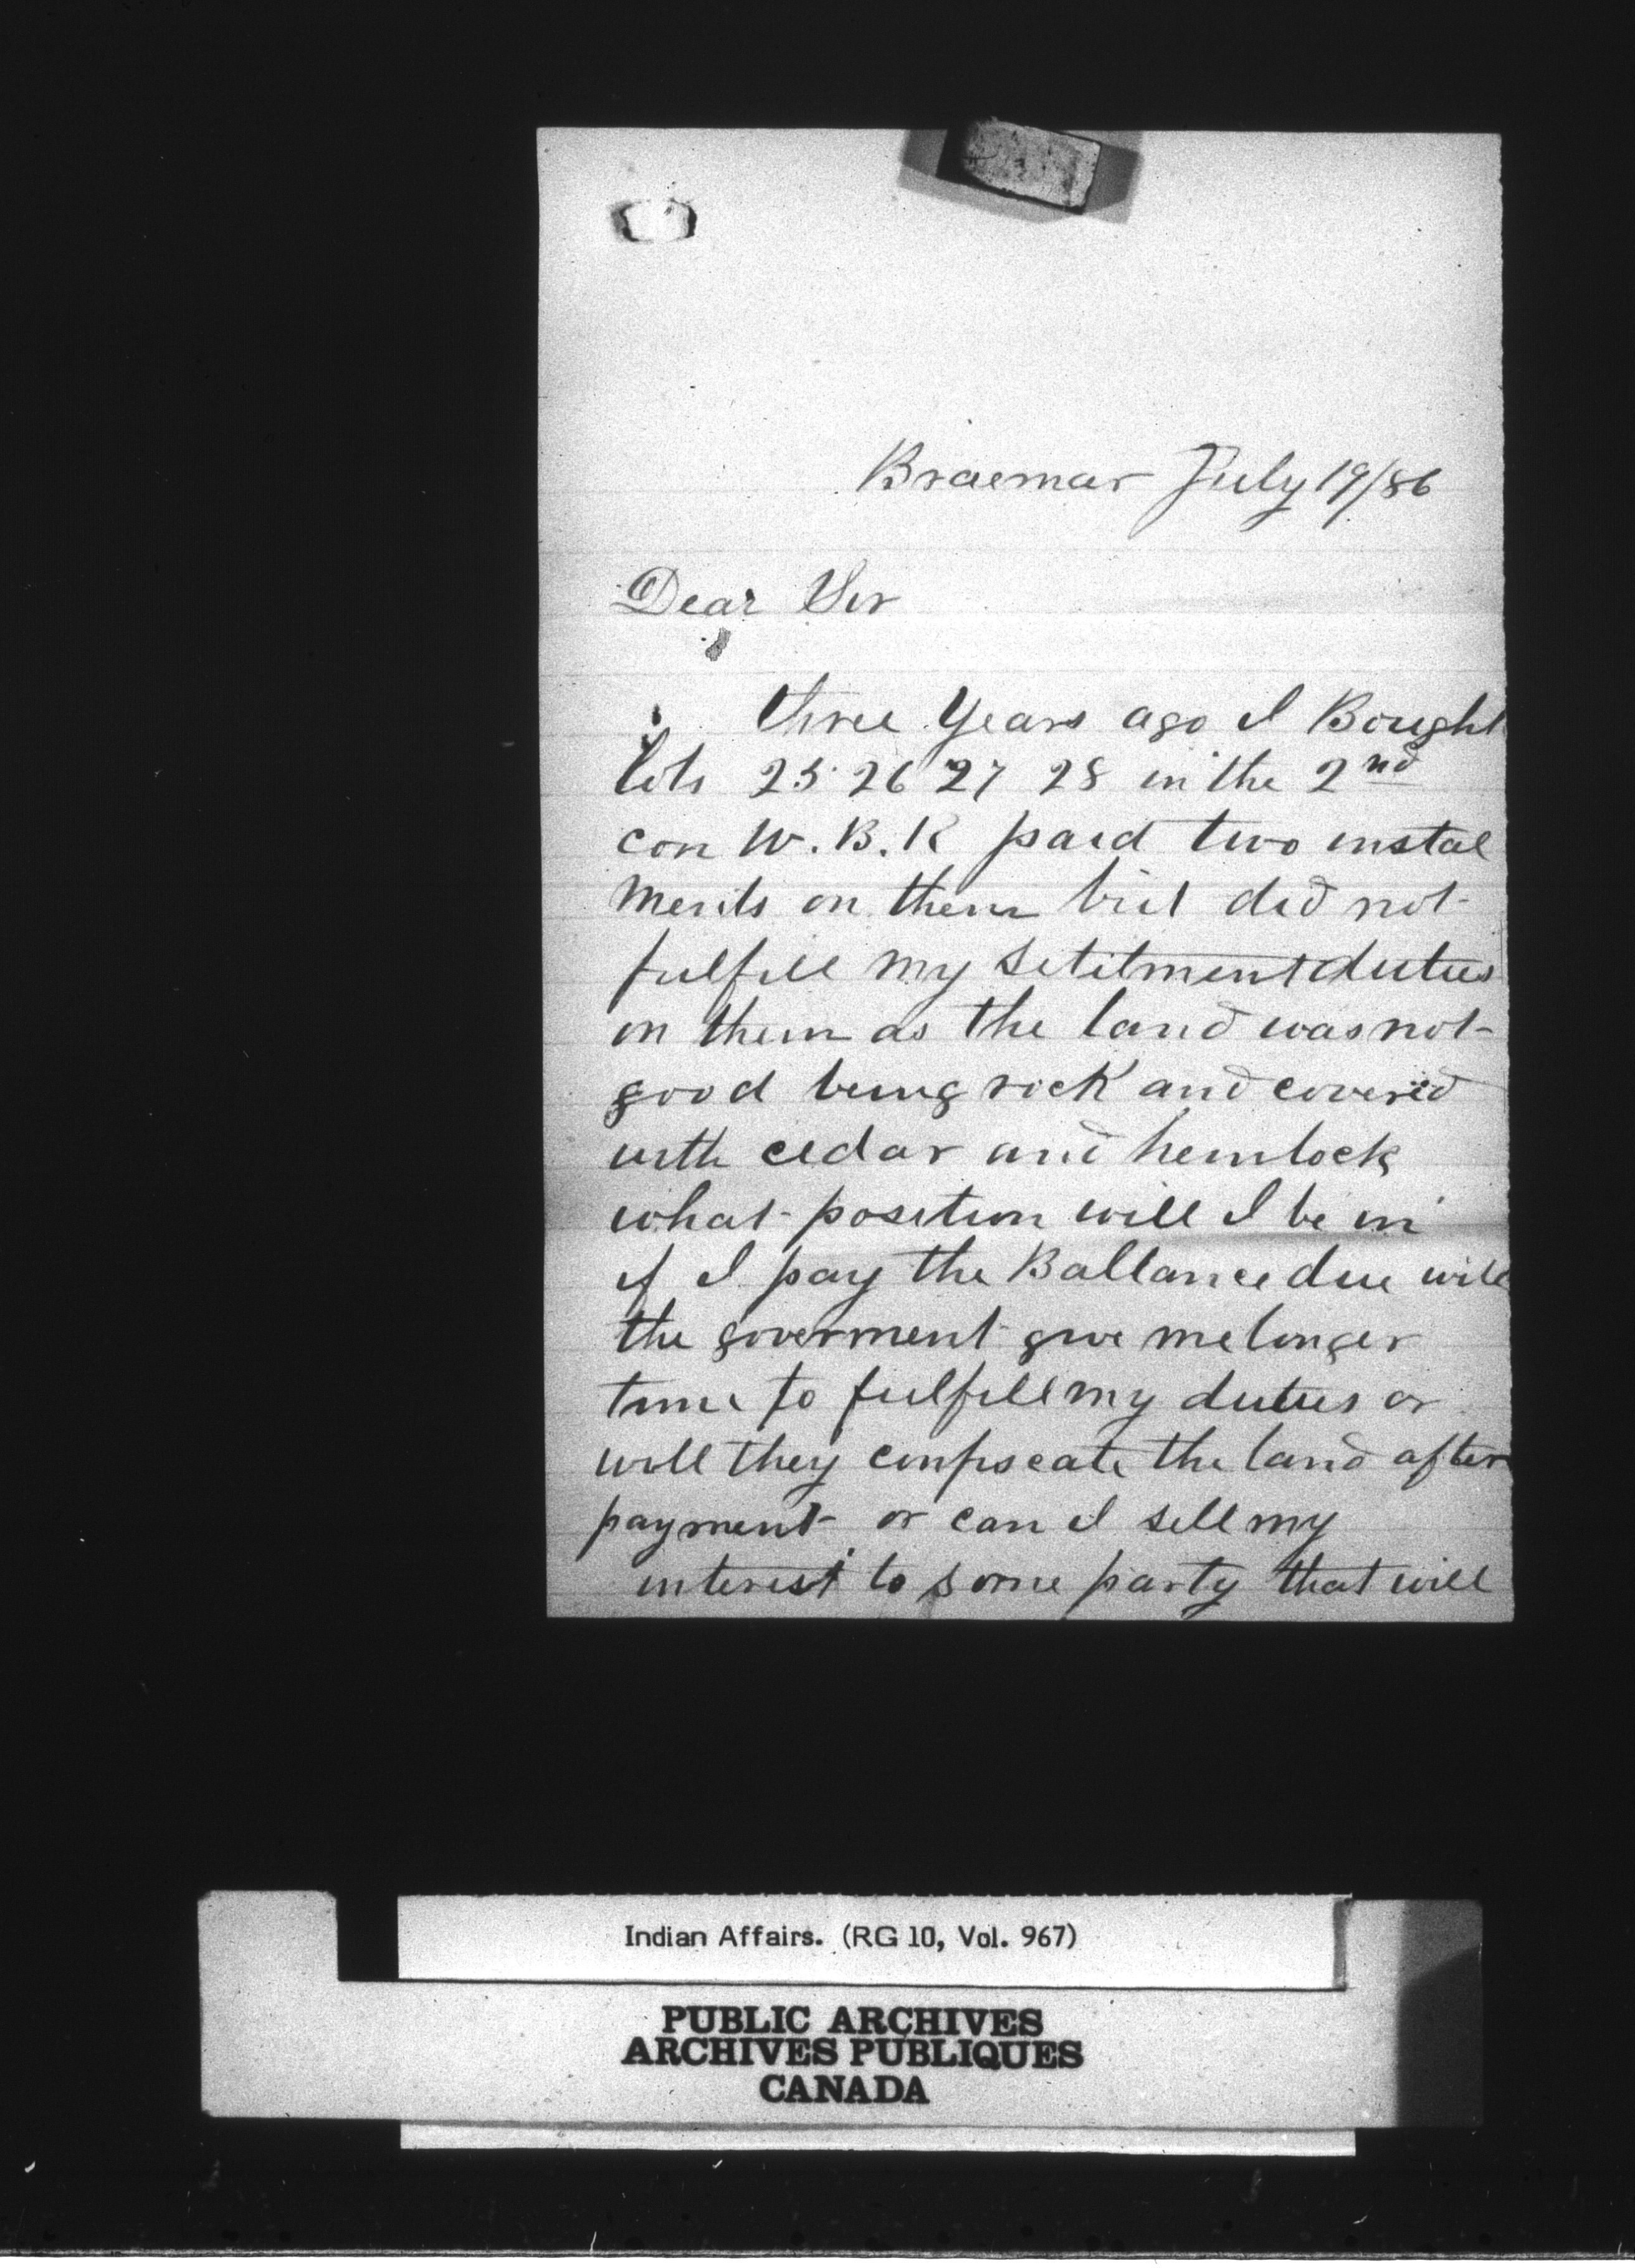 Braemar July 19/86
Dear Sir
three years ago I Bought
lots 25 26 27 28 in the 2nd
con W. B. R paid two instal
ments on them but did not
fulfill my setitment duties
on them as the land was not
good being rock and covered
with cedar and hemlock
what position will I be in
if I pay the Ballance due will
the goverment give me longer
time to fulfill my duties or
will they confiscate the land after
payment or can I sell my
interest to some party that will
Indian Affairs. (RG 10, Vol. 967)
PUBLIC ARCHIVES
ARCHIVES PUBLIQUES
CANADA